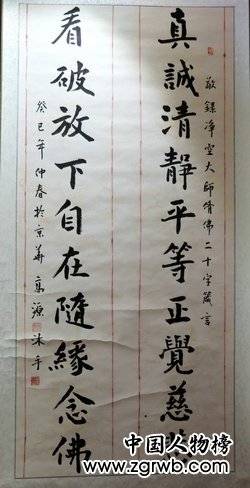 敬録淨空大師脩佛二十字箴言
真誠清靜平等正覺慈悲
看破放下自在隨緣念佛
癸巳年仲春於京華 高源 沐手
中国人物榜
www.zgrwb.com